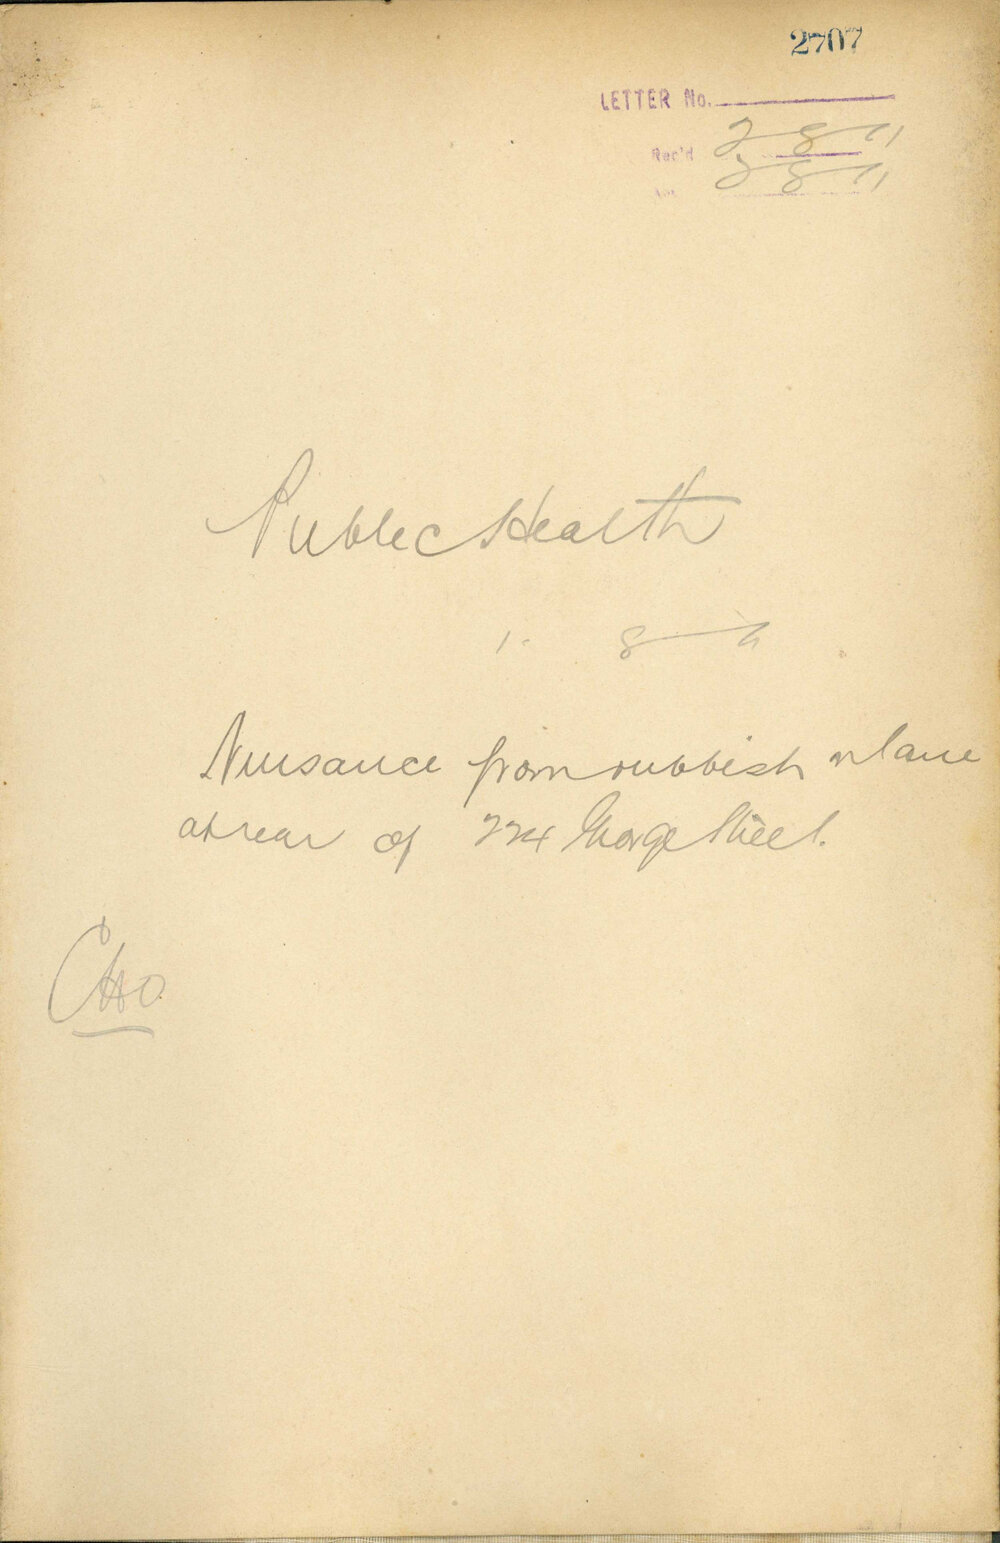 2707
LETTER No.
Rec'd 2 8 11
3 8 11
Public Health
1. 8 11
Nuisance from rubbish in lane
at rear of 224 George Street.
CHO